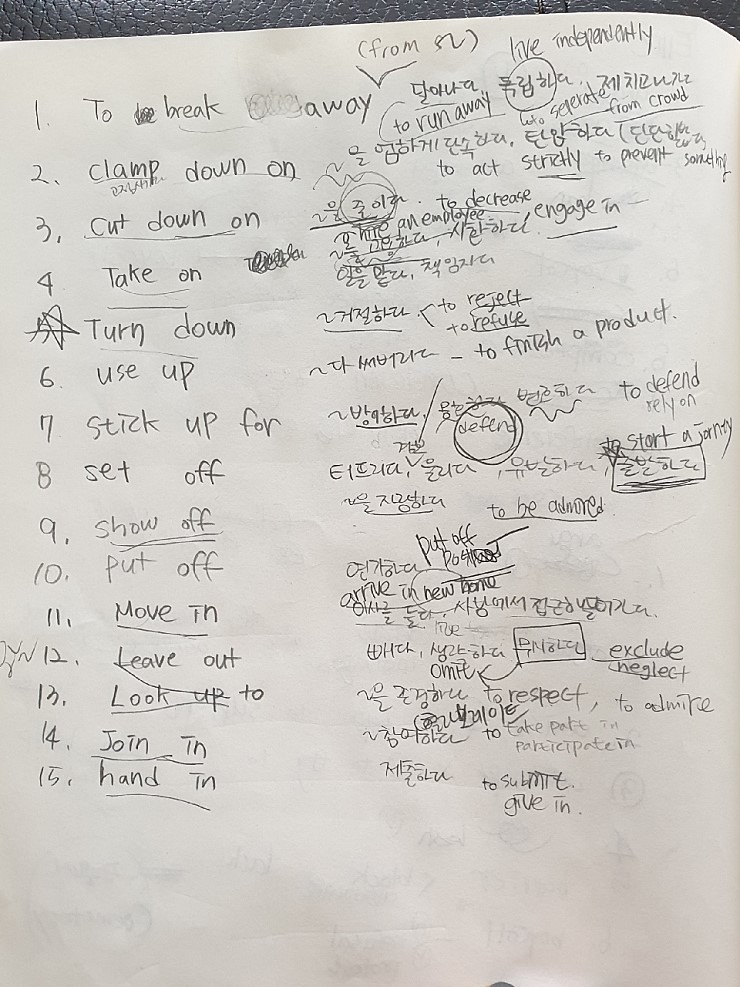 (from s2) live independently.
1. To break away 달아나다 독립하다, 제치고나가다
to run away into seperate from crowd
2. clamp down on ~을 엄하게 단속하다, 탄압하다
고정시키다 to act strictly to prevent something
3. cut down on ~을 줄이다. to decrease
hire an employee engage in
4 Take on ~을 고용하다, 시합하다.
일을 맡다, 책임지다
Turn down ~거절하다 to reject
to refuse
6. use up ~다 써버리다 - to finish a product.
7 stick up for ~방어하다, 옹호하다 변호하다 to defend
defend rely on
to start a jorney
8 set off 터뜨리다, 울리다, 유발하다, 출발하다
9. show off ~을 자랑하다 to be admired
10. put off 연기하다 put off
arrive in new home
11. Move in 이사를 들다, 사방에서 접근해 들어가다.
live
SYN 12. Leave out 빼다, 생략하다 무시하다 exclude
omit neglect
13. Look up to ~을 존경하다 to respect, to admire
14. Join in ~참여하다 to take part in
participate in
15. hand in 제출하다 to submit.
give in.